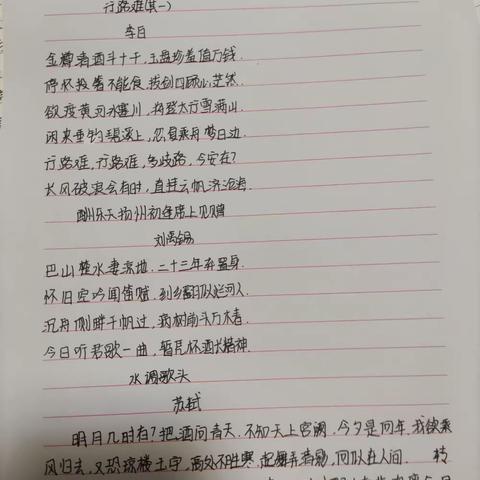 行路难(其一)
李白
金樽清酒斗十千,玉盘珍羞值万钱.
停杯投箸不能食,拔剑四顾心茫然.
欲渡黄河冰塞川,将登太行雪满山.
闲来垂钓碧溪上,忽复乘舟梦日边.
行路难,行路难,多歧路,今安在?
长风破浪会有时,直挂云帆济沧海.
酬乐天扬州初逢席上见赠
刘禹锡
巴山楚水凄凉地.二十三年弃置身.
怀旧空吟闻笛赋,到乡翻似烂柯人.
沉舟侧畔千帆过,病树前头万木春.
今日听君歌一曲,暂凭杯酒长精神.
水调歌头
苏轼
明月几时有?把酒问青天.不知天上宫阙,今夕是何年.我欲乘
风归去,又恐琼楼玉宇,高处不胜寒.起舞弄清影,何似在人间. 转